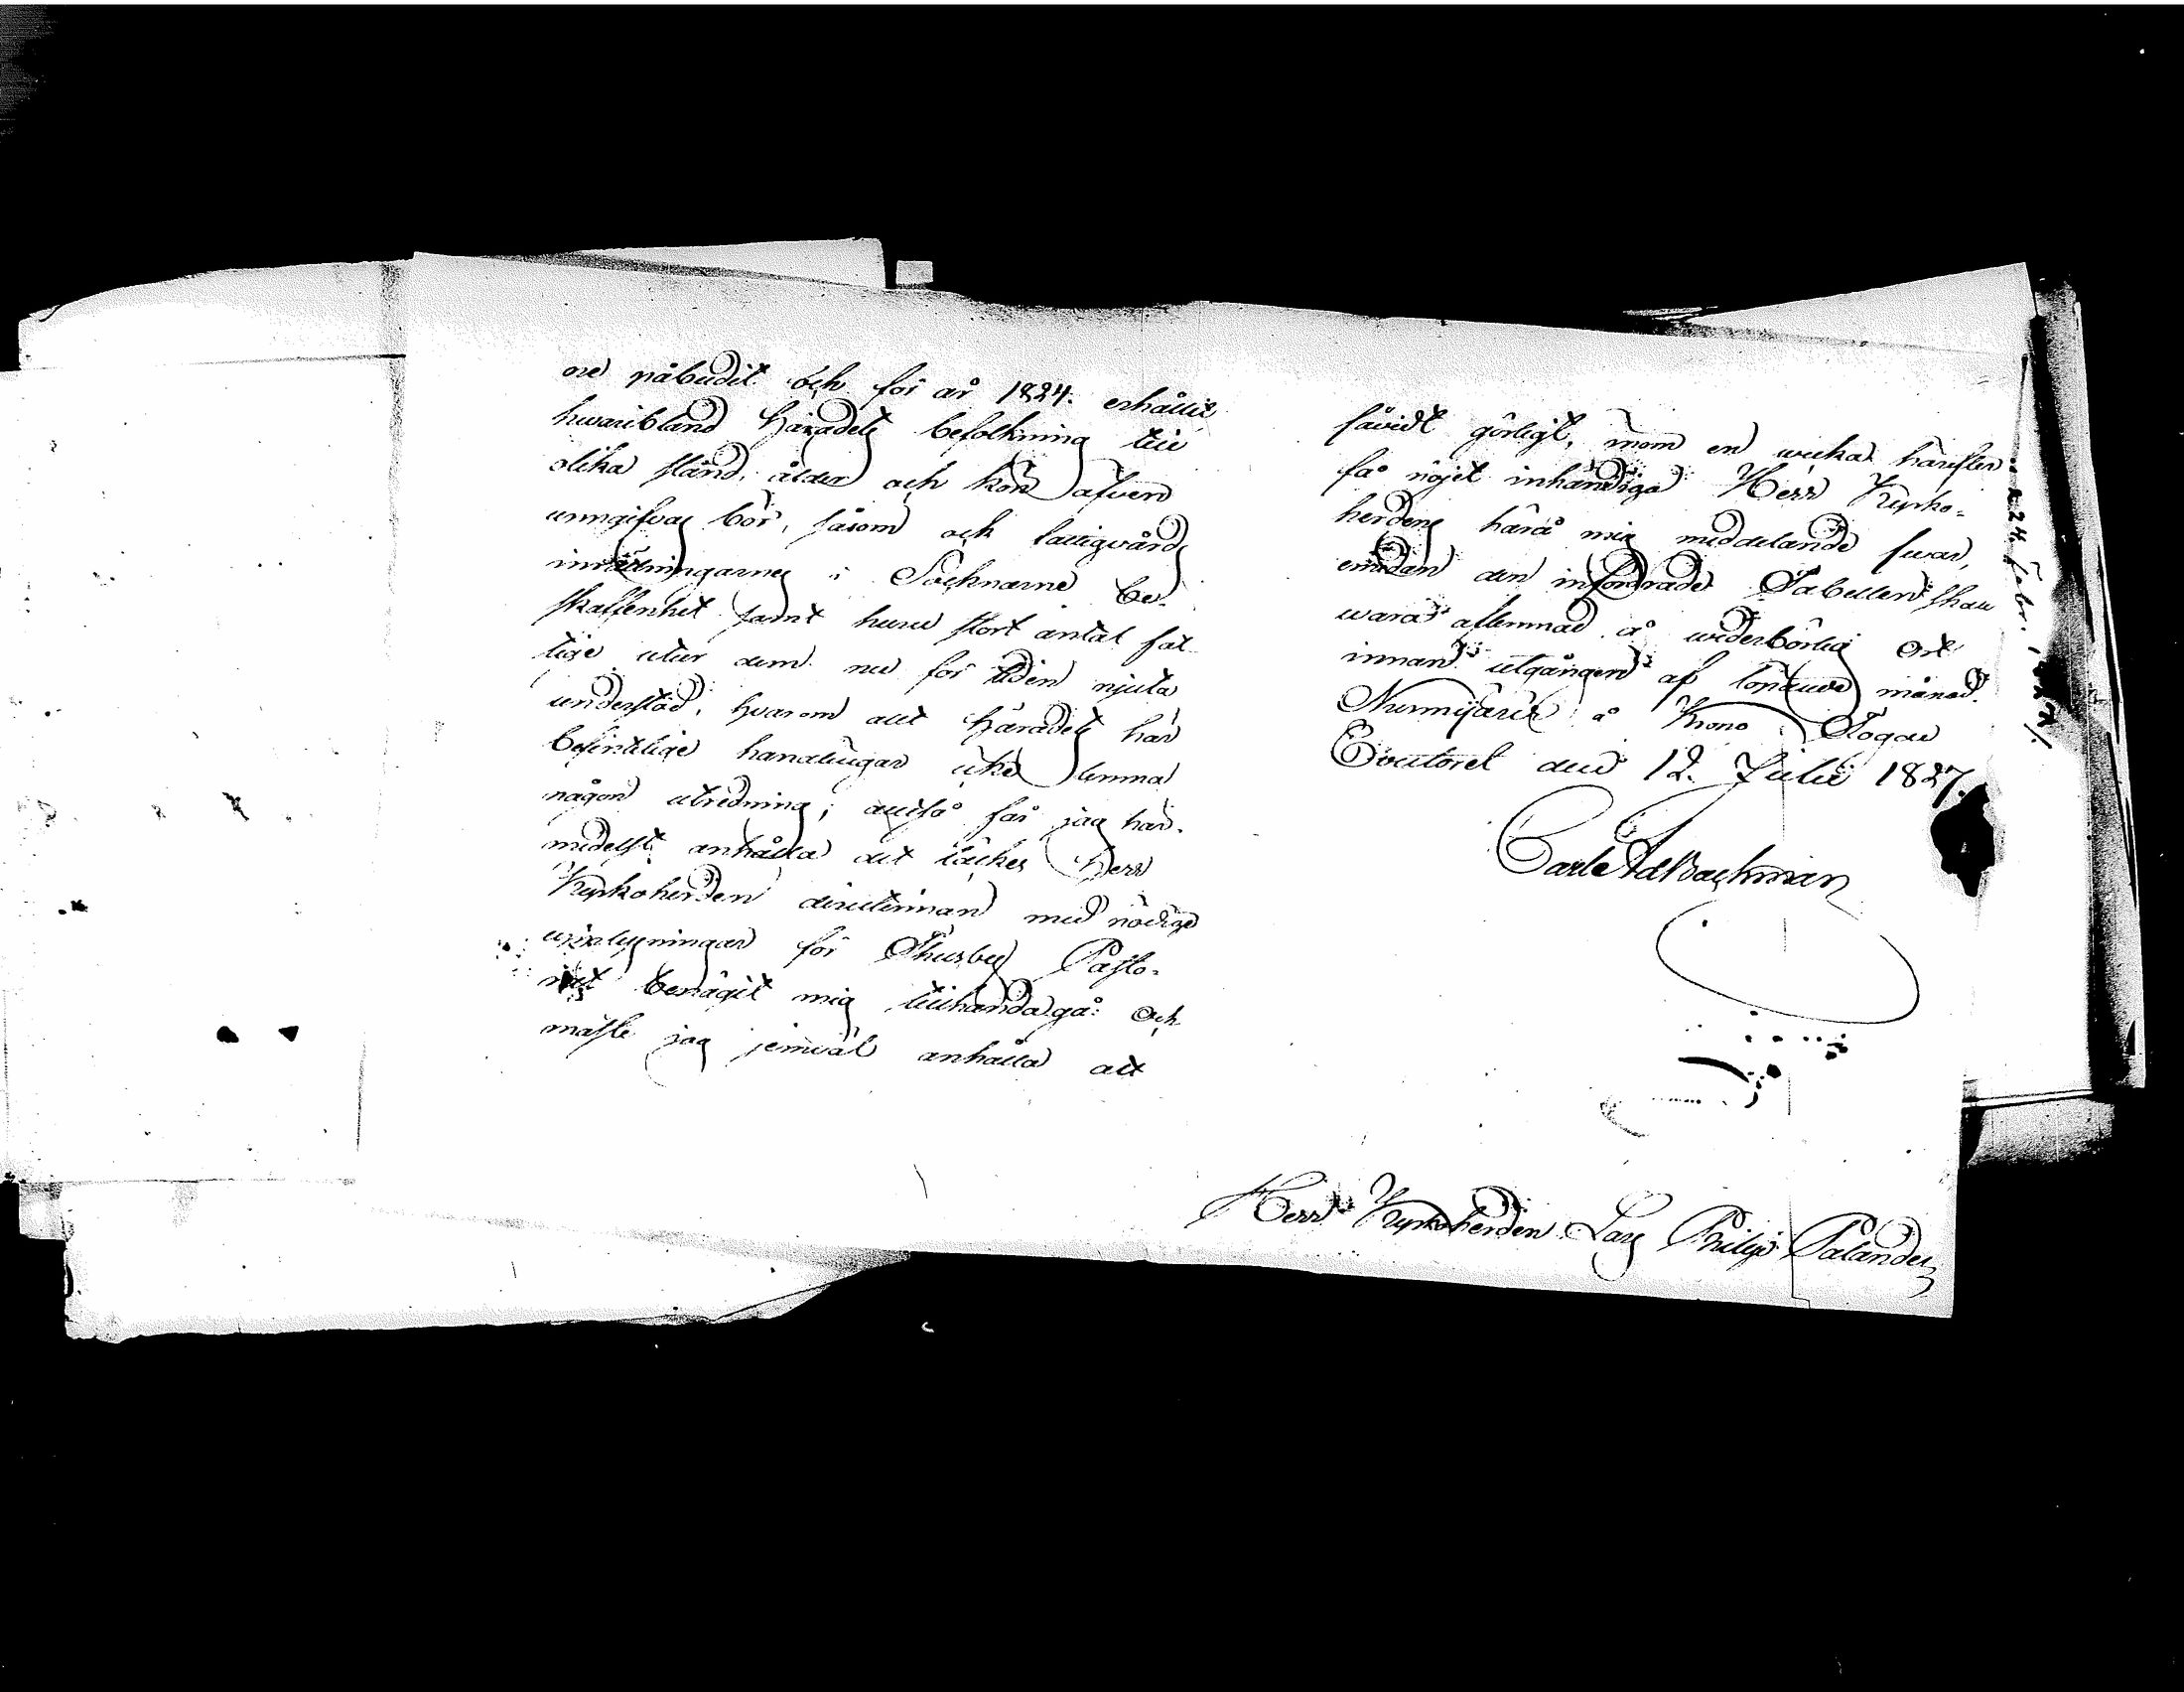 ne påbudit och för år 1824. erhållit
hwaribland Häradets befolkning till
olika stånd, ålder och kön äfven
uppgifvas bör, såsom och fattigvårds
inrättningarnes i Socknarne be-
skaffenhet samt huru stort antal fat-
tige utur dem nu för tiden njuta
understöd, hvarom allt Häradets här
befintelige handlingar icke lemna
någon utredning; alltså får jag här-
medelst anhålla att täckes Herr
Kyrkoherden derutinnan med nödige
upplysningar för Thusby Pasto-
rat benägit mig tillhandagå: Och
måste jag jemväl anhålla att
såvidt görligt, inom en wecka härefter
få nöjet inhändiga Herr Kyrko-
herdens härå mig meddelande swar,
emedan den infordrade Tabellen skall
wara aflemnad å wederbörlig Ort
innan utgången af löpande månad.
Nurmijärvi å Krono Fogde
Contoret den 12. Julii 1827.
Carl Ad Backman
Herr Kyrkoherden Lars Philip Palander
24. Febr.